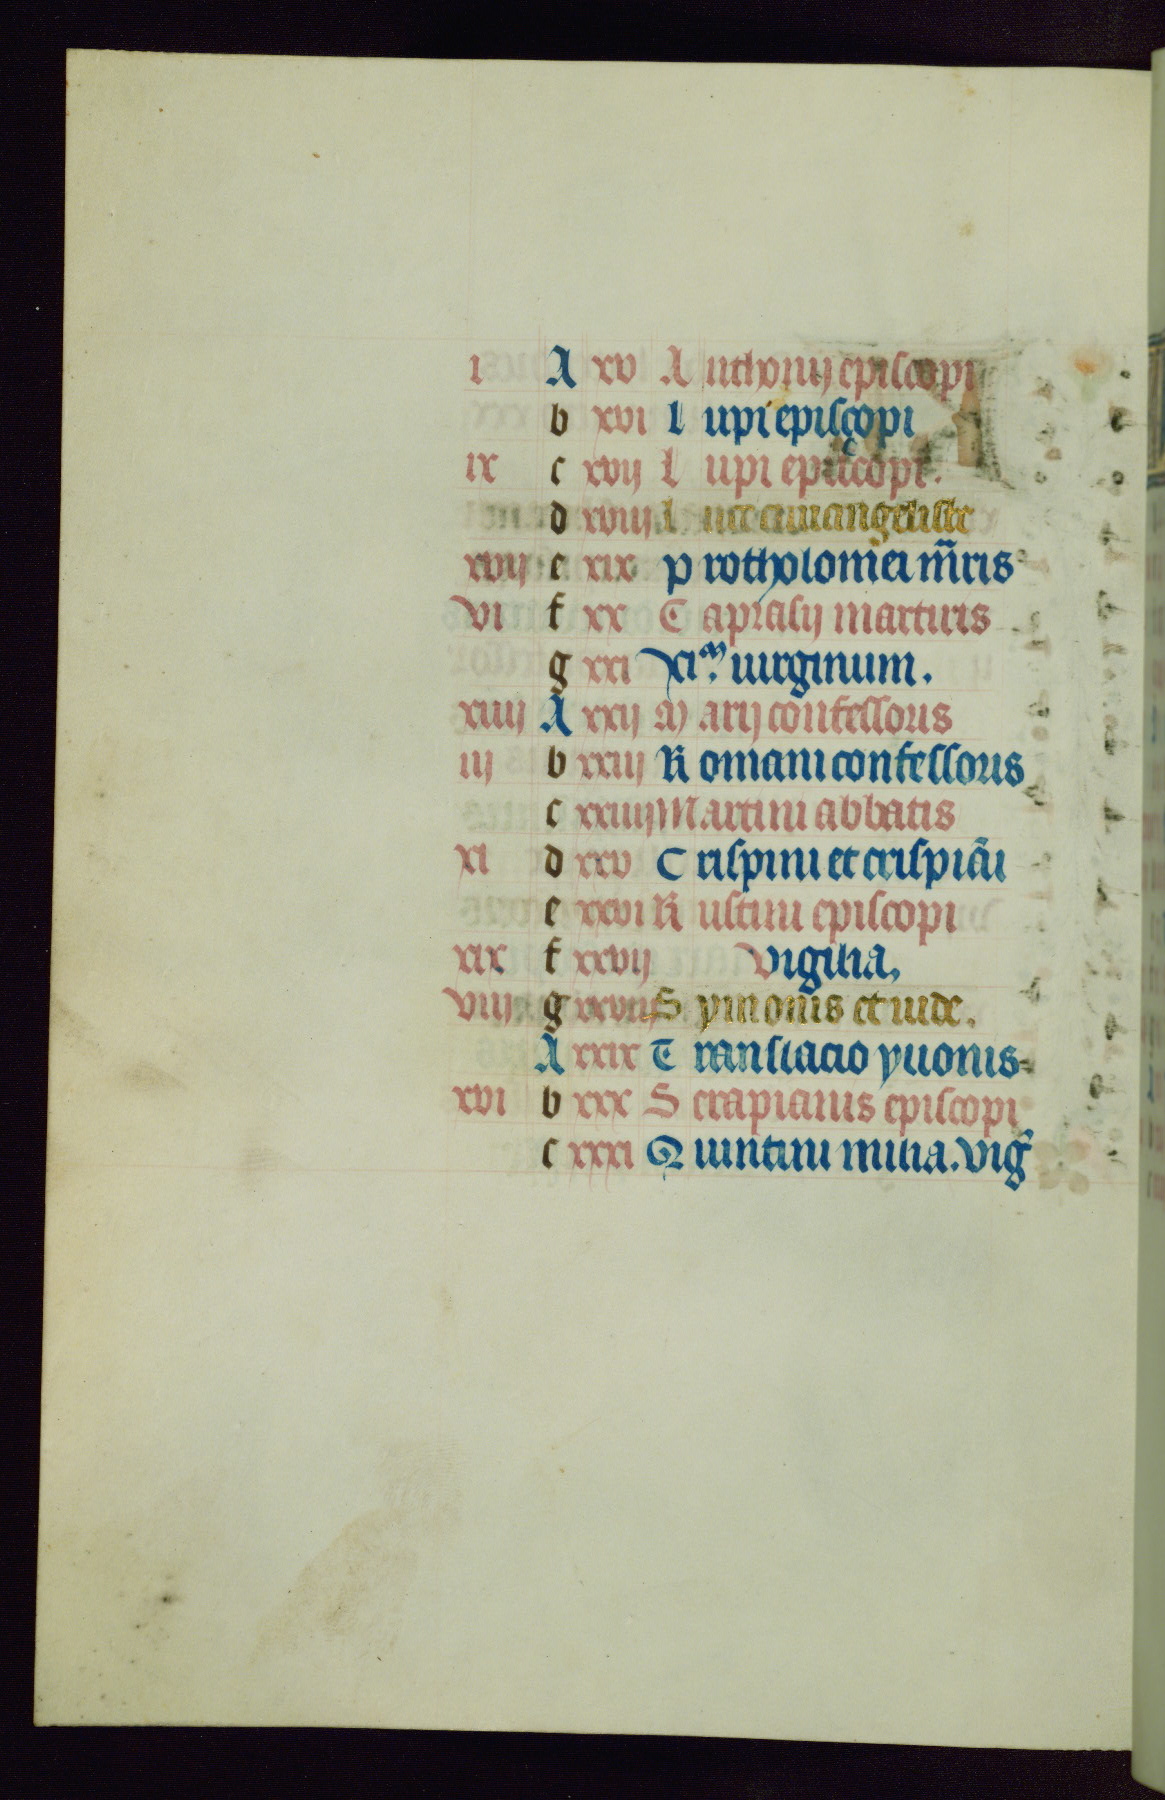 i A xv Anthonij episcopi
b xvi Lupi episcopi
ix c xvij Lupi episcopi.
d xviij Luce euuangeliste
xvij e xix Protholomei m̃ris
vi f xx Caprasij martiris
g xxi Xi.m uirginum.
xiiij A xxij Marij confessoris
iij b xxiij Romani confessoris
c xxiiij Martini abbatis
xi d xxv Crispini et crispiãi
e xxvi Rustini episcopi
xix f xxvij vigilia,
viij g xxviij Symonis et iude.
A xxix Translacio yuonis
xvi b xxx Serapianis episcopi
c xxxi Quintini milia. vig̃